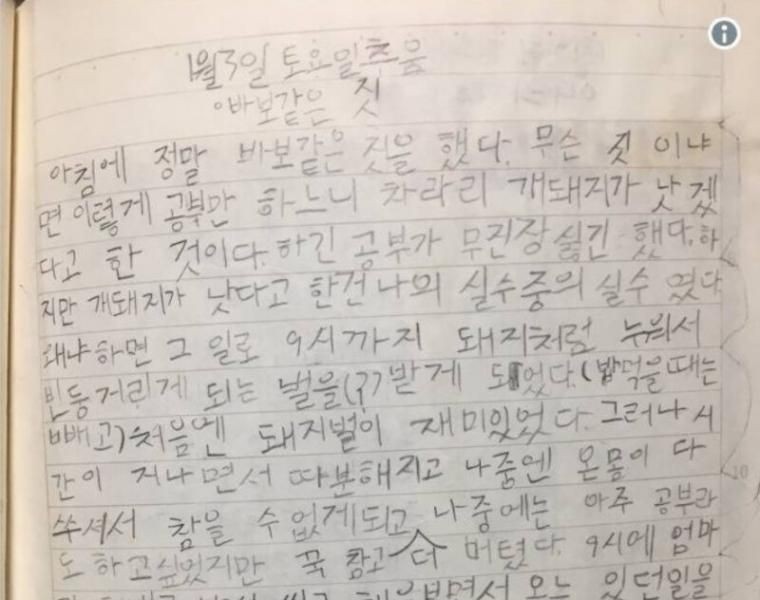 1월3일 토요일
바보같은 짓
아침에 정말 바보같은 짓을 했다. 무슨 짓 이냐
면 이렇게 공부만 하느니 차라리 개돼지가 낫겠
다고 한 것이다. 하긴 공부가 무진장 싫긴 했다. 하
지만 개돼지가 낫다고 한건 나의 실수중의 실수 였다
왜냐하면 그 일로 9시까지 돼지처럼 누워서
빈둥거리게 되는 벌을(?)받게 되었다.(밥먹을때는
빼고)처음엔 돼지벌이 재미있었다. 그러나 시
간이 지나면서 따분해지고 나중엔 온몸이 다
쑤셔서 참을 수없게되고 나중에는 아주 공부라
도 하고싶었지만 꾹 참고 더 버텼다. 9시에 엄마
오늘 있던일을
10